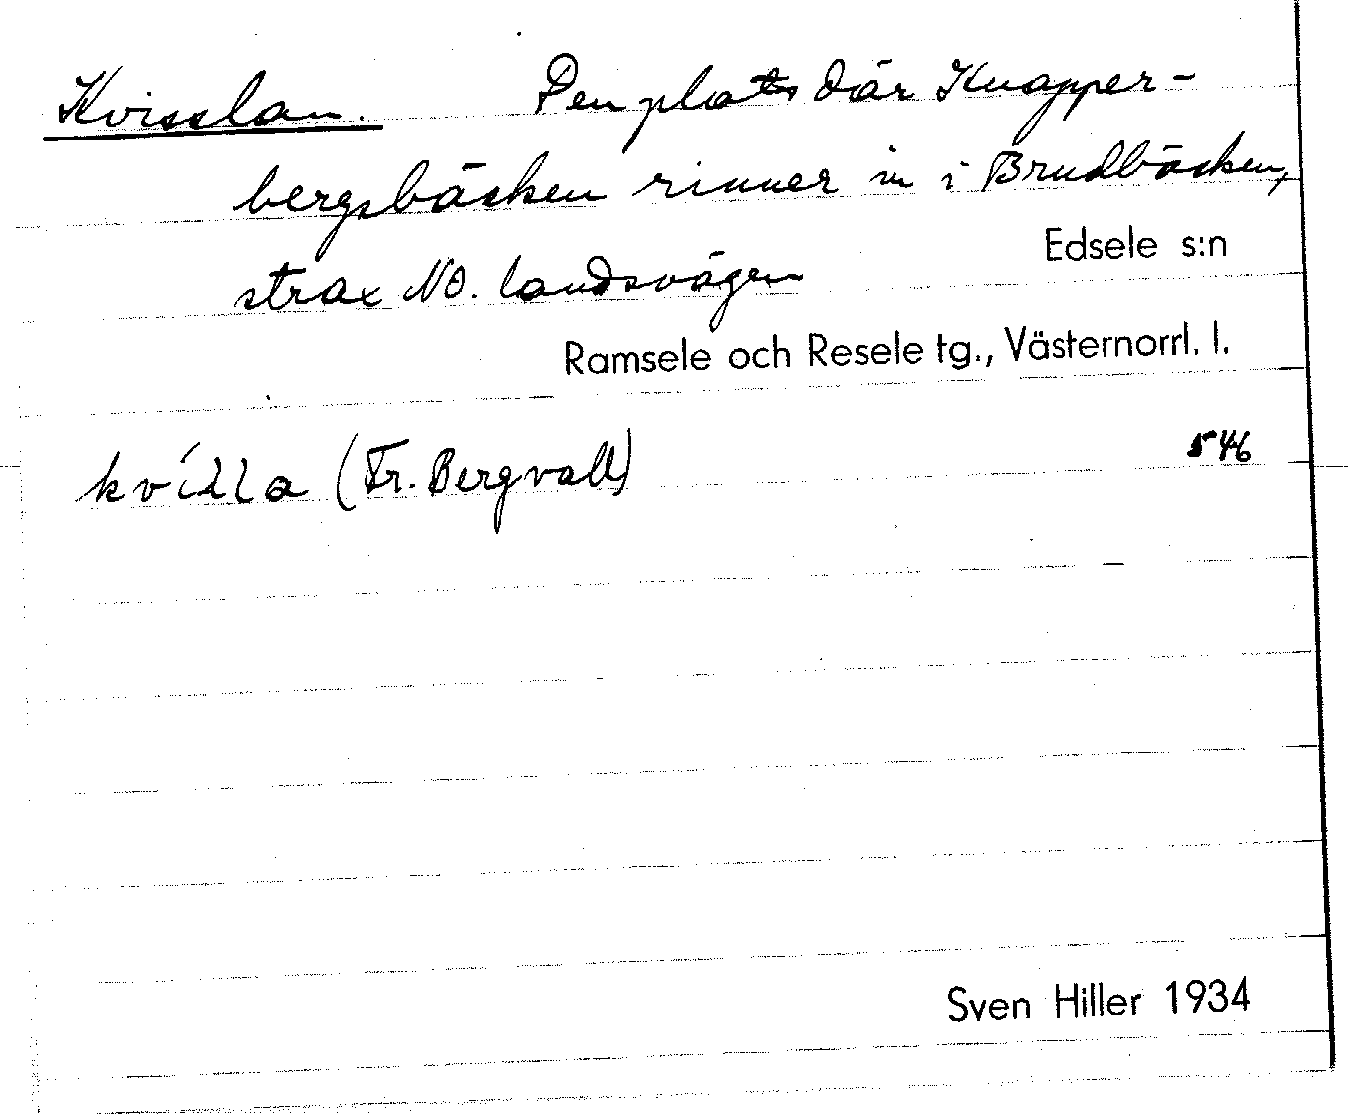 Kvisslan. Den plats där Knapper-
bergsbäcken rinner in i Brudbäcken,
strax NO. landsvägen
Edsele s:n
Ramsele och Resele tg., Västernorrl. l.
(Fr. Bergvall)
546
Sven Hiller 1934